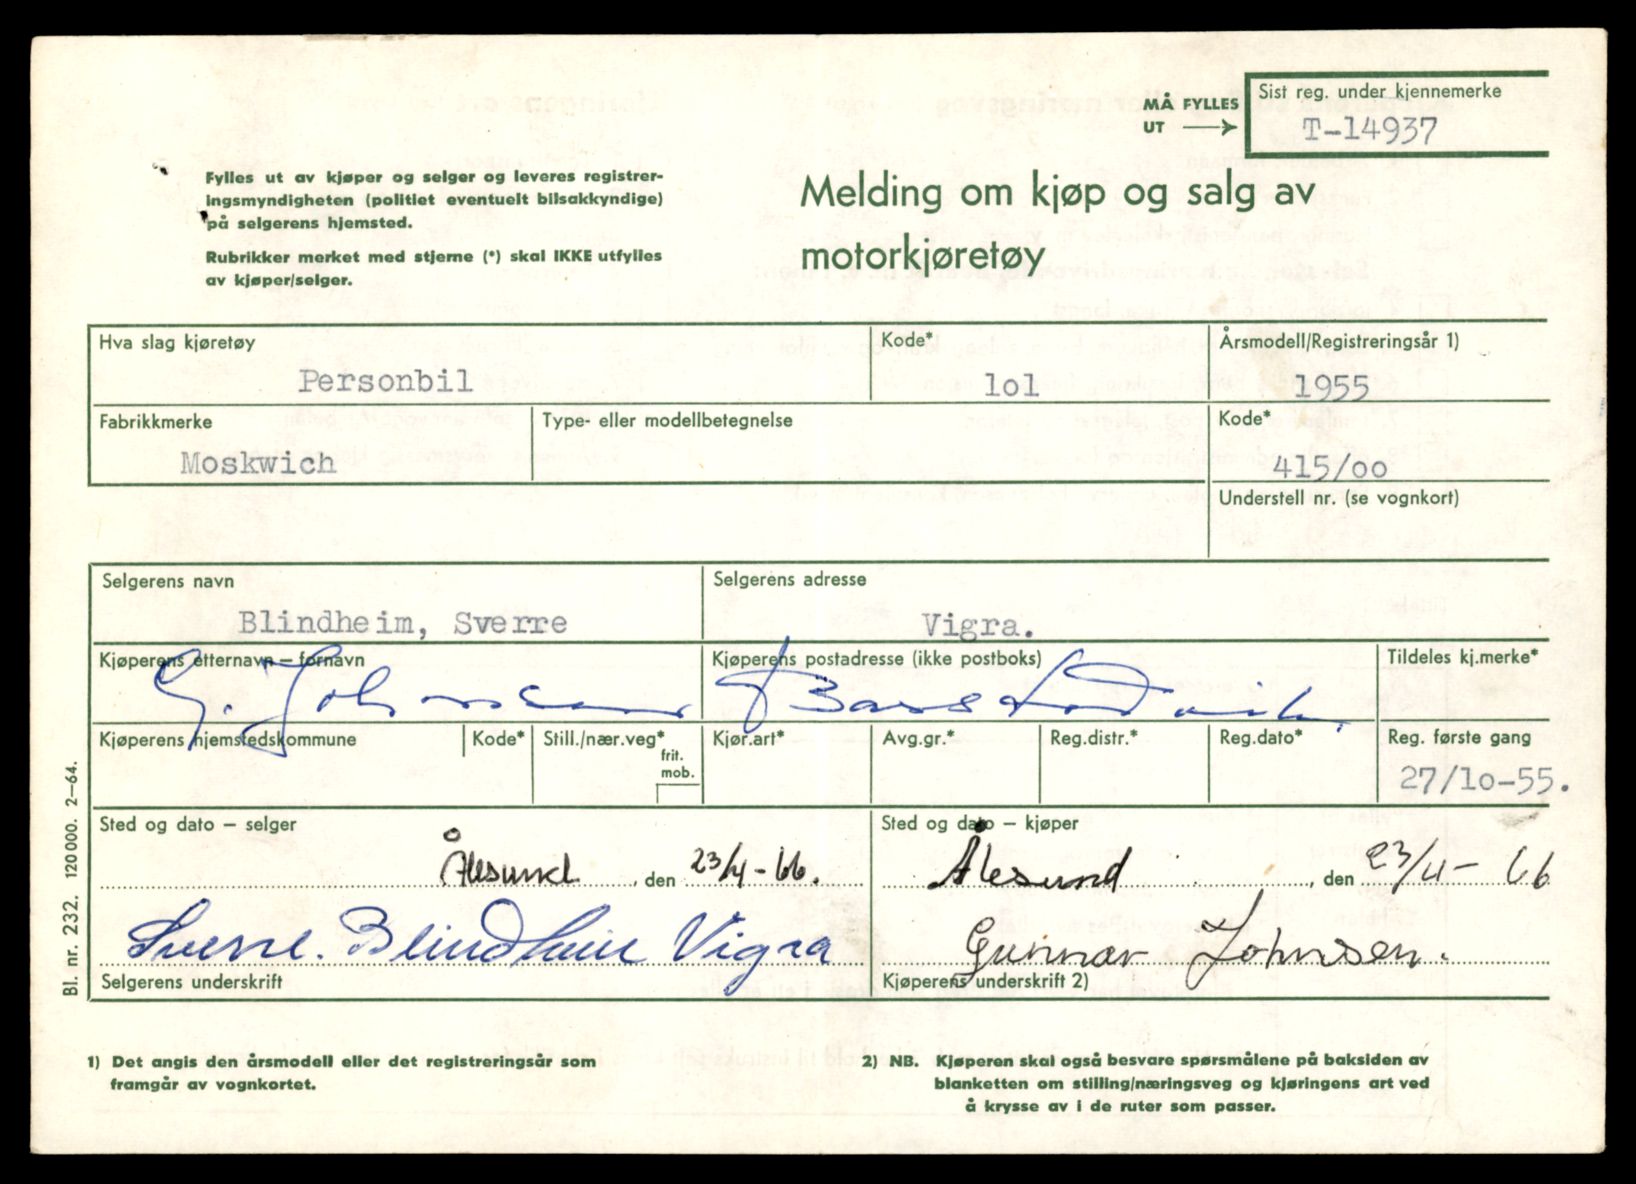 MÅ FYLLES
UT
Sist reg. under kjennemerke
T-14937
Fylles ut av kjøper og selger og leveres registrer-
ingsmyndigheten (politiet eventuelt bilsakkyndige)
på selgerens hjemsted.
Rubrikker merket med stjerne (*) skal IKKE utfylles
av kjøper/selger.
Melding om kjøp og salg av
motorkjøretøy
Hva slag kjøretøy
Personbil
Kode*
lol
Årsmodell/Registreringsår 1)
1955
Fabrikkmerke
Moskwich
Type- eller modellbetegnelse
Kode*
415/oo
Understell nr. (se vognkort)
Selgerens navn
Blindheim, Sverre
Selgerens adresse
Vigra.
Kjøperens etternavn – fornavn
G. Johnsen
Kjøperens postadresse (ikke postboks)
Tildeles kj.merke*
Kjøperens hjemstedskommune
Kode*
Still./nær.veg*
frit.
mob.
Kjør.art*
Avg.gr.*
Reg.distr.*
Reg.dato*
Reg. første gang
27/lo-55.
Sted og dato – selger
Ålesund, den 23/4-66.
Sverre Blindheim Vigra
Selgerens underskrift
Sted og dato – kjøper
Ålesund, den 23/4-66
Gunnar Johnsen.
Kjøperens underskrift 2)
Bl. nr. 232. 120000. 2–64.
1) Det angis den årsmodell eller det registreringsår som
framgår av vognkortet.
2) NB. Kjøperen skal også besvare spørsmålene på baksiden av
blanketten om stilling/næringsveg og kjøringens art ved
å krysse av i de ruter som passer.